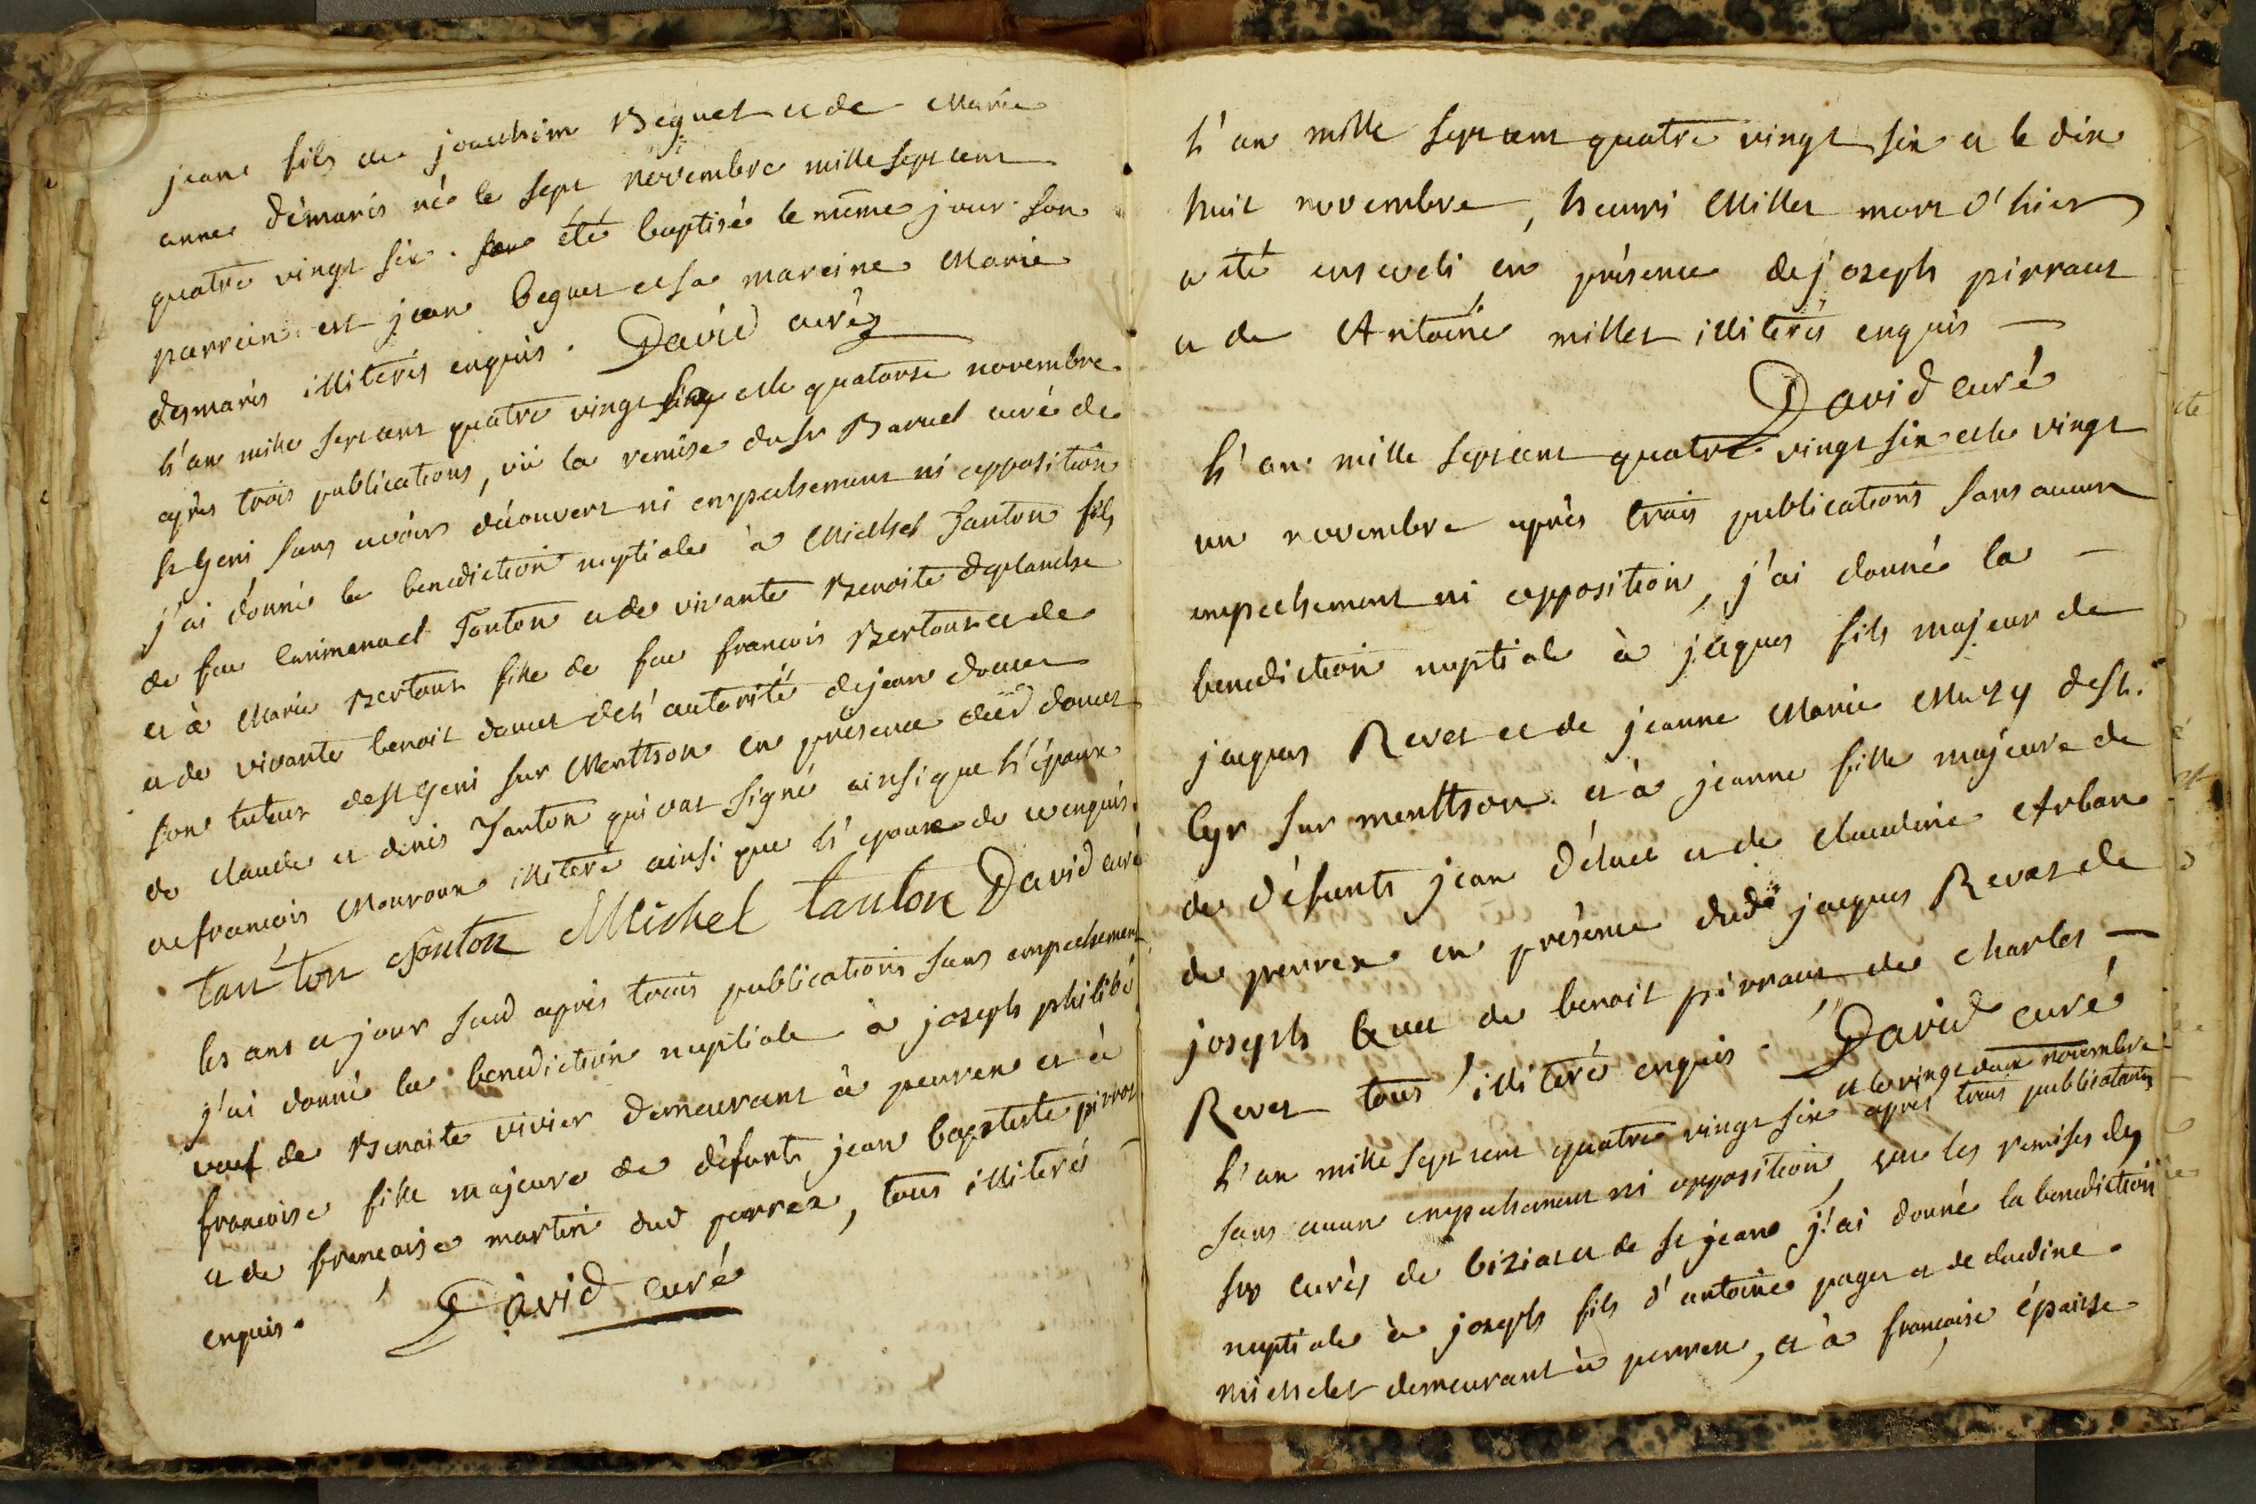 jean fils de joachim Beguet et de Marie
anne démaris né le sept novembre mille sept cent
quatre vingt six. a été baptisé le même jour. son
parrein est jean beguet et sa mareine Marie
desmaris illiterés enquis. David curé
L'an mille sept cent quatre vingt six et le quatorse novembre
après trois publications, vû la remise du sr Baruel curé de
st Geni sans avoir découvert ni empechement ni opposition
j'ai donné la benediction nuptiale à Michel Tanton fils
de feu Emmenuel Tanton et de vivante Benoite deplanche
et à Marie Bertoux fille de feu francois Bertoux et de
et de vivante benoit doucet de l'autorité de jean doucet
son tuteur de st Geni sur Menthon en présence dud doucet
de claude et denis Tanton qui ont signé ainsi que l'époux
et francois Mouroux illiteré ainsi que l'epouse de ce enquis.
tanton tonton Michel tanton David curé
les ans et jour sud après trois publications sans empechement
j'ai donné la benediction nuptiale à joseph philibé
veuf de Benoite vivier demeurant à perrex et à
francoise fille majeure de défunts jean baptiste pirrot
et de francoise martin dud perrex, tous illiterés
enquis. David curé
L'an mille sept cent quatre vingt six et le dix
huit novembre, henri Millet mort d'hier
a été enseveli en présence de joseph pirraut
et de Antoine millet illiterés enquis
David curé
L'an mille sept cent quatre vingt six et le vingt
un novembre après trois publications sans aucun
empechement ni opposition, j'ai donné la
benediction nuptiale à jâques fils majeur de
jacques Revet et de jeanne Marie Muzy de st.
Cyr sur menthon et à jeanne fille majeure de
de défunts jean déluet et de claudine Arban
de perrex en présence dud jacques Revet de
joseph de benoit pirraut de charles
Revet tous illiteré enquis. David curé
et le vingt deux novembre
L'an mille sept cent quatre vingt six après trois publications
sans aucun empechement ni opposition, vue les remises des
srs curés de biziat et de st jean j'ai donné la benediction
nuptiale à joseph fils d'antoine paget et de claudine
michelet demeurant à perrex, et à francoise épaisse